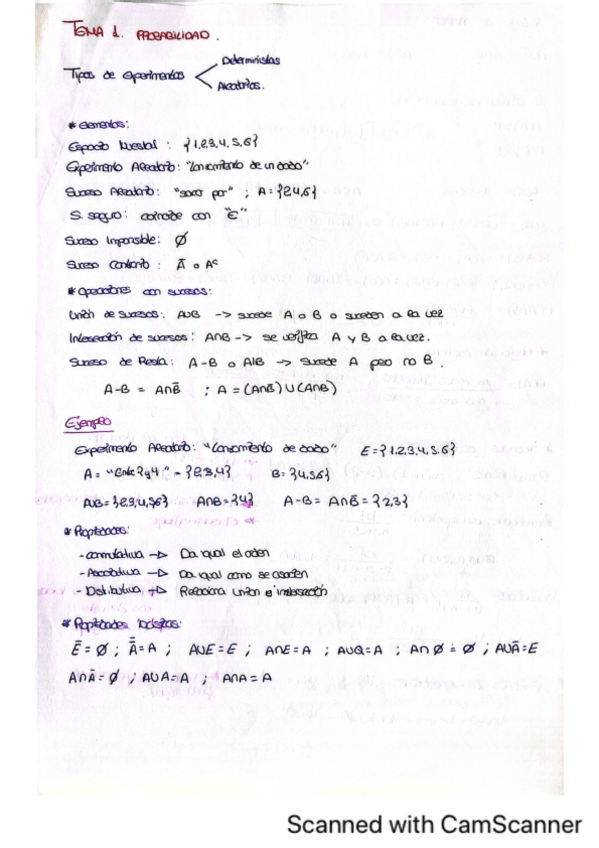 TEMA 1. PROBABILIDAD.
Tipos de experimentos
Deterministas
Aleatorios.
* Elementos:
Espacio Muestral : {1,2,3,4,5,6}
Experimento Aleatorio: "Lanzamiento de un dado"
Suceso Aleatorio: "sacar par" ; A = {2,4,6}
S. seguro: coincide con "E"
Suceso Imposible: Ø
Suceso Contrario : Ā o Aᶜ
* Operaciones con sucesos:
Unión de sucesos: A∪B -> sucede A o B o suceden a la vez
Intersección de sucesos: A∩B -> se verifica A y B a la vez.
Suceso de Resta: A-B o A\B -> Sucede A pero no B.
A-B = A∩B̄ ; A = (A∩B) ∪ (A∩B)
Ejemplo
Experimento Aleatorio: "Lanzamiento de dado" E = {1,2,3,4,5,6}
A = "Entre 2 y 4" - {2,3,4} B = {4,5,6}
A∪B = {2,3,4,5,6} A∩B = {4} A-B = A∩B̄ = {2,3}
* Propiedades:
- Conmutativa -> Da igual el orden
- Asociativa -> Da igual como se asocien
- Distributiva -> Relaciona unión e intersección
* Propiedades lógicas:
Ē = Ø ; A̿ = A ; A∪E = E ; A∩E = A ; A∪Ø = A ; A∩Ø = Ø ; A∪Ā = E
A∩Ā = Ø ; A∪A = A ; A∩A = A
Scanned with CamScanner